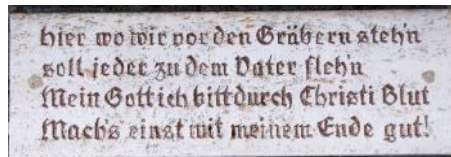 Hier wo wir vor den Gräbern steh'n
soll jeder zu dem Vater fleh'n
Mein Gott ich bitt durch Christi Blut
Mach's einst mit meinem Ende gut!